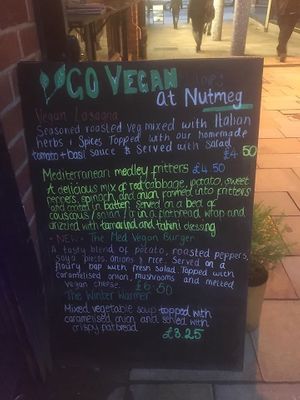 GO VEGAN
at Nutmeg
Vegan Lasagna
Seasoned roasted veg mixed with Italian
herbs + Spices Topped with our homemade
tomato + basil sauce & Served with salad
£4.50
Mediterranean medley fritters £4.50
A delicious mix of red cabbage, potato, sweet
peppers, spinach, and onion formed into fritters
and coated in batter. Served on a bed of
couscous / onion / in a flatbread wrap and
drizzled with tamarind and tahini dressing
- NEW - The Med Vegan Burger
A tasty blend of potato, roasted peppers,
soya pieces, onions & rice. Served on a
floury bap with fresh salad. Topped with
caramelised onion, mushrooms and melted
vegan cheese. £6.50
The Winter Warmer
Mixed vegetable soup topped with
caramelised onion and served with
crispy flatbread
£3.25